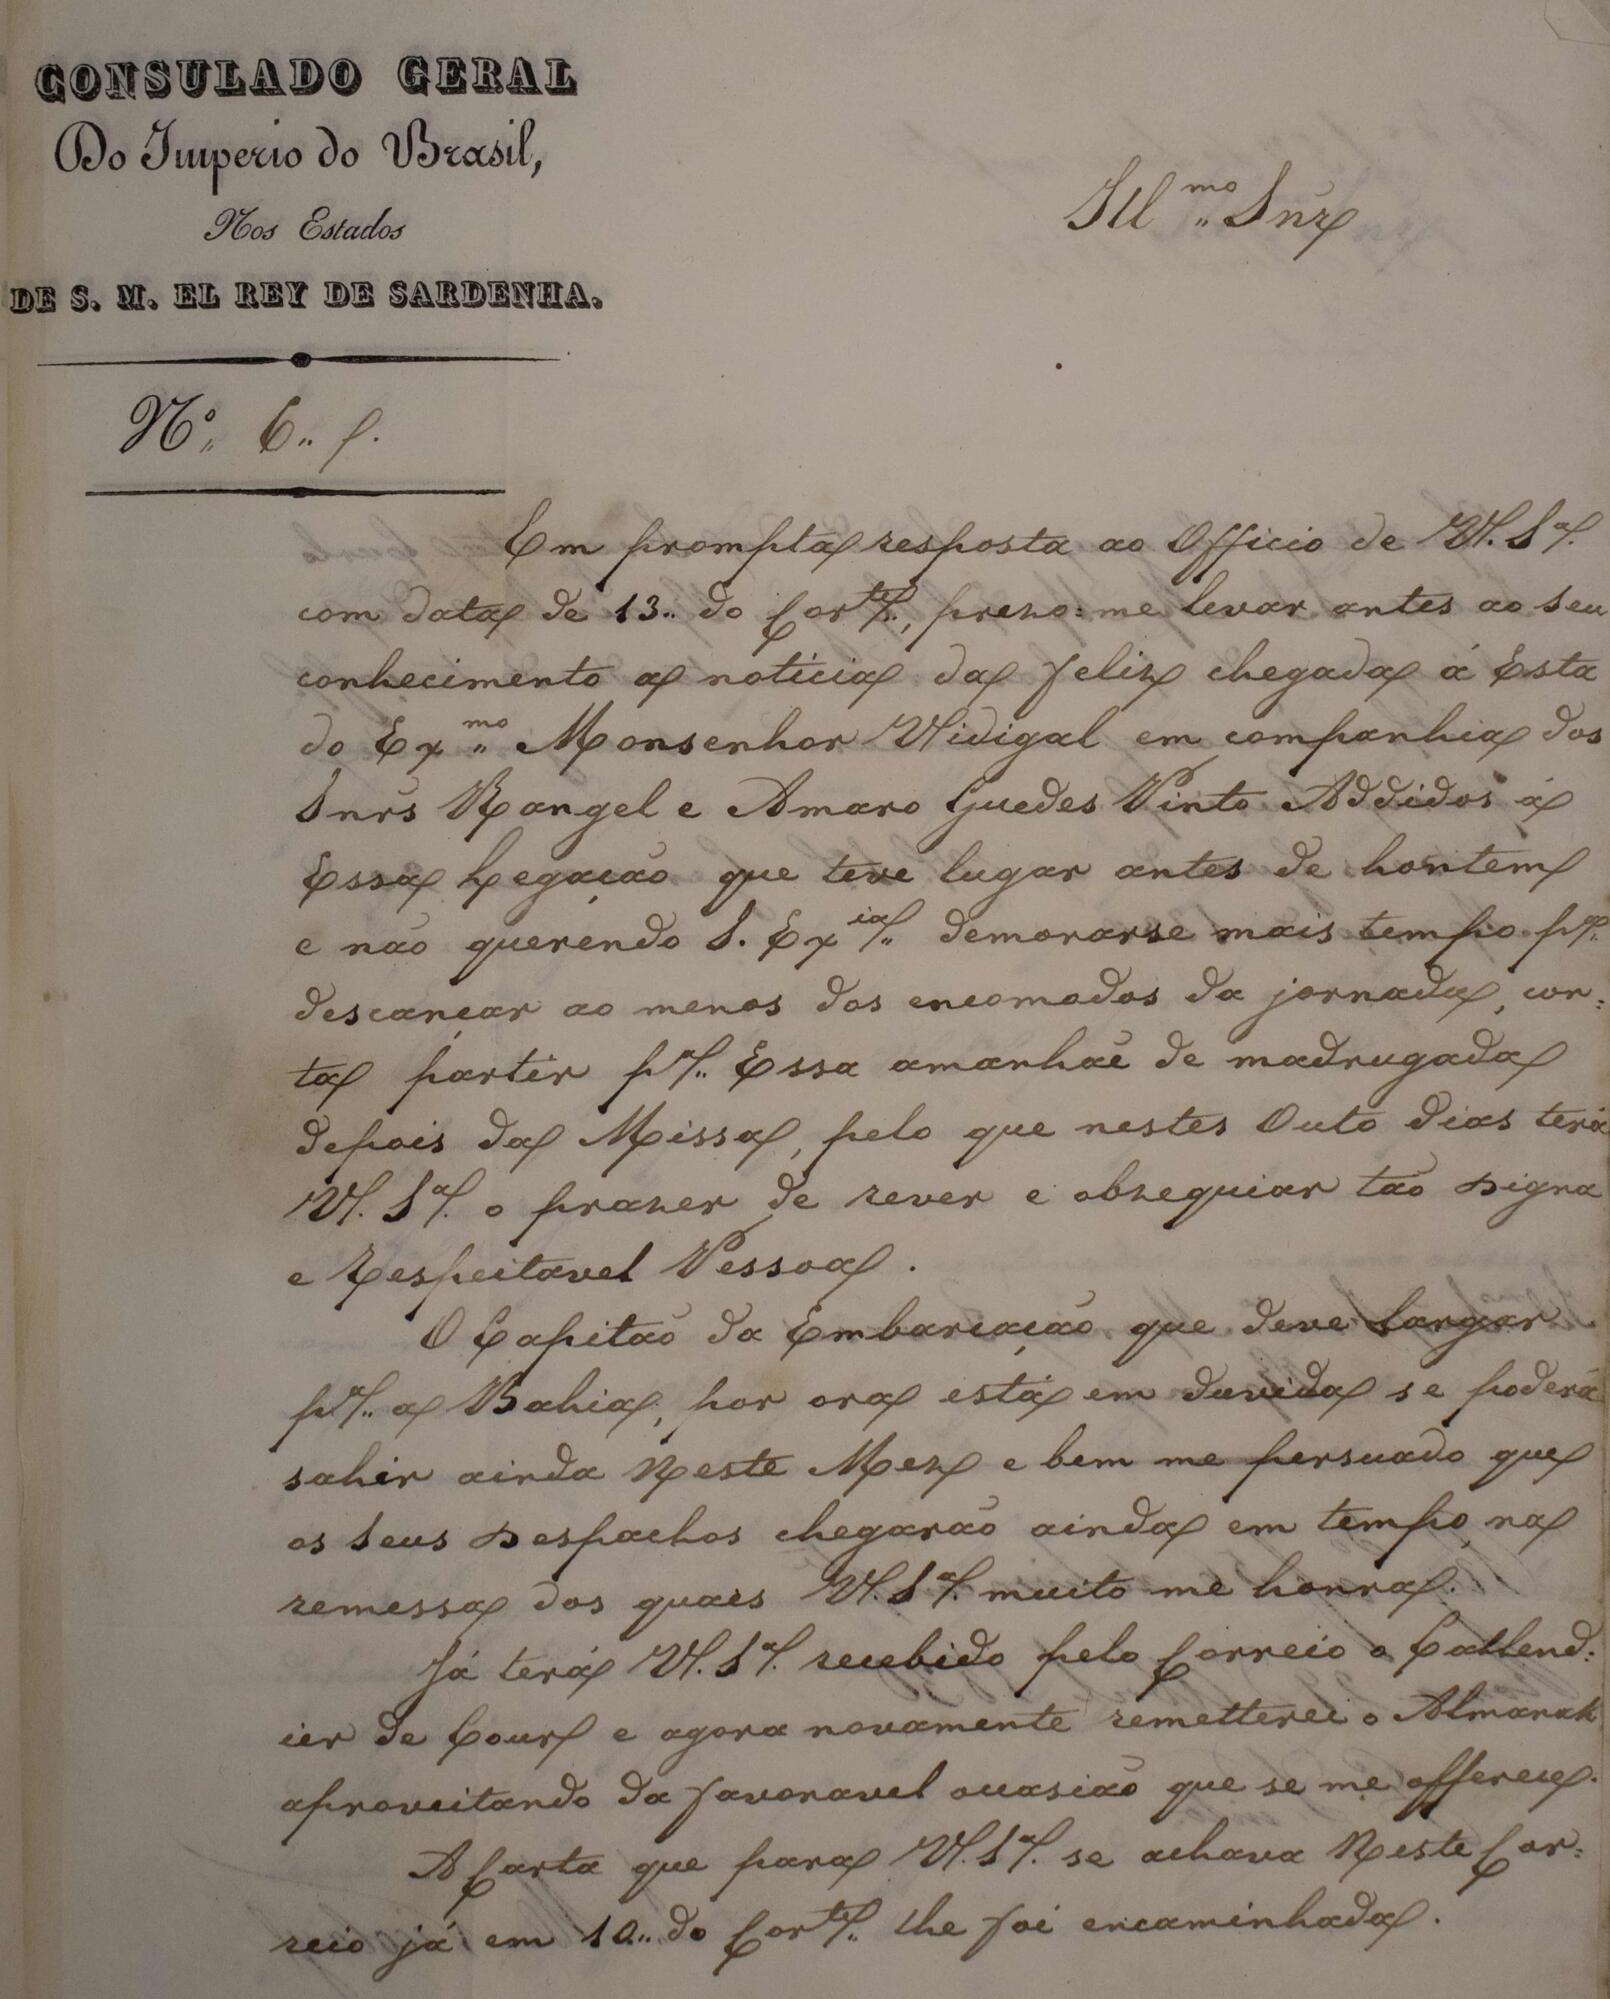 CONSULADO GERAL
Do Imperio do Brasil,
Nos Estados
DE S. M. EL REY DE SARDENHA.
Nº 6
Illmo Snr
Em prompta resposta ao Officio de V. Sa.
com data de 13 do Corte., prezo=me levar antes ao seu
conhecimento a noticia da feliz chegada á Esta
do Exmo Monsenhor Vidigal em companhia dos
Snrs Rangel e Amaro Guedes Pinto Addidos á
Essa Legação que teve lugar antes de hontem
e não querendo S. Exia demorarse mais tempo pa.
descançar ao menos dos encomodos da jornada, con=
ta partir pa. Essa amanhãe de madrugada
depois da Missa, pelo que nestes Outo dias terá
V. Sa. o prazer de rever e obzequiar tão Digna
e Respeitavel Pessoa.
O Capitão da Embarcação que deve largar
pa. a Bahia, por ora está em duvida se poderá
sahir ainda Neste Mez e bem me persuado que
os seus Despachos chegarão ainda em tempo, na
remessa dos quaes V. Sa. muito me honra.
Já terá V. Sa. recebido pelo Correio o Callend=
ier de Cour e agora novamente remetterei o Almanak
aproveitando da favoravel ocasião que se me offerece.
A Carta que para V. Sa. se achava Neste Cor=
reio já em 10 do Corte. lhe foi encaminhada.